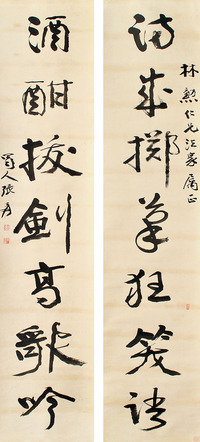 詩成擲筆狂笑語
林勳仁兄法家屬正
酒酣拔劍高歌吟
蜀人張爰